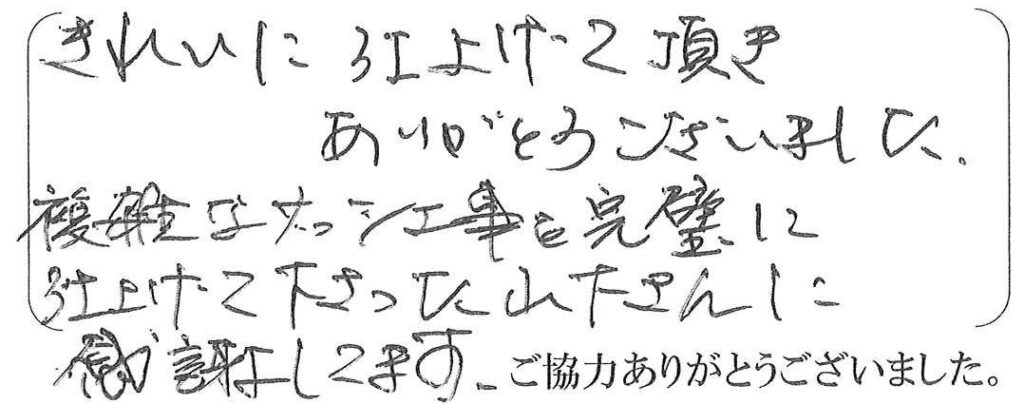 きれいに仕上げて頂き
ありがとうございました、
複雑なサッシ工事を完璧に
仕上げて下さった山下さんに
感謝してます。ご協力ありがとうございました。